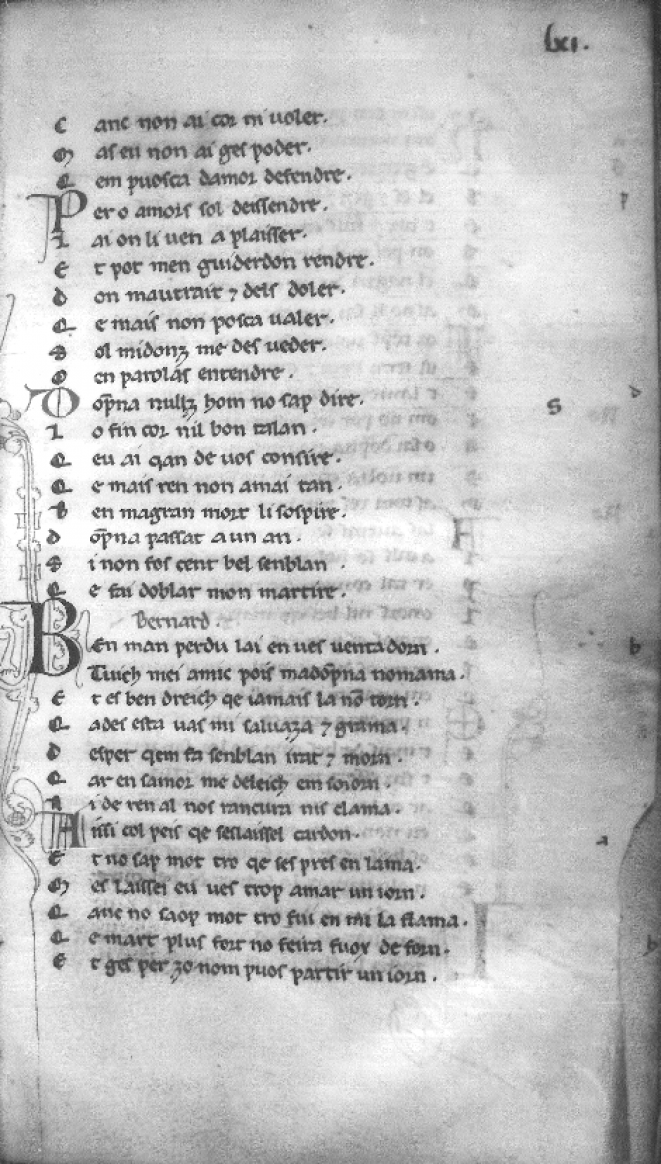 lxi.
C anc non ai cor ni uoler.
M as eu non ai ges poder.
Q em puosca damor defendre.
P er o amors sol deissendre.
L ai on li uen a plaisser.
E t pot men guiderdon rendre.
D on mautrait ⁊ dels doler.
Q e mais non posca ualer.
S ol midonz me des ueder.
O en parolas entendre.
D op̄na nullz hom no sap dire.
L o fin cor nil bon talan.
Q eu ai qan de uos consire.
Q e mais ren non amai tan.
B en magran mort li sospire.
D op̄na passat a un an.
S i non fos cent bel senblan.
Q e fai doblar mon martire.
Bernard.
BEn man perdu lai en ues uentadorn.
Tuich mei amic pois madop̄na nomama.
E t es ben dreich qe iamais la nō torn.
Q ades esta uas mi saluaza ⁊ grama.
D esper qem fa senblan irat ⁊ morn.
Q ar en samor me deleich em soiorn.
N i de ren al nos rancura nis clama.
A issi col peis qe seslaissel cardon.
E t no sap mot tro qe ses pres en lama.
M es laissei eu ues trop amar un iorn.
Q anc no saop mot tro fui en mi la flama.
Q e mart plus fort no feira fuox de forn.
E t ges per zo nom puos partir un iorn.